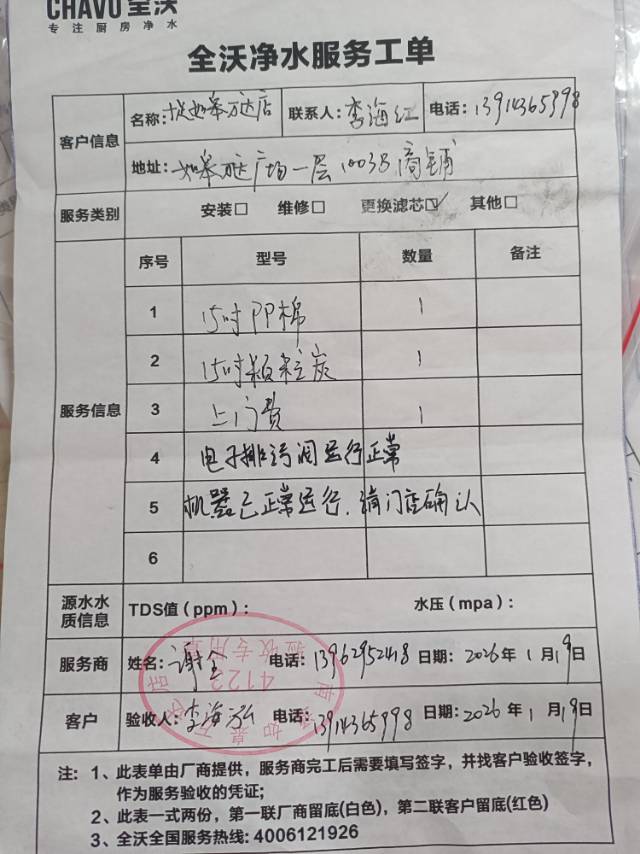 CHAVO 全沃
专注厨房净水
全沃净水服务工单
客户信息
名称: 如皋万达店 联系人: 李海红 电话: 13914365998
地址: 如皋万达广场一层1003B商铺
服务类别 安装□ 维修□ 更换滤芯☑ 其他□
服务信息
序号 型号 数量 备注
1 15吋PP棉 1
2 15吋颗粒炭 1
3 上门费 1
4 电子排污阀运行正常
5 机器已正常运行.请门店确认
6
源水水质信息 TDS值（ppm）: 水压（mpa）:
服务商 姓名: 谢 电话: 13962952418 日期: 2026年1月19日
客户 验收人: 李海 电话: 13914365998 日期: 2026年1月19日
验收专用章
4123
注: 1、此表单由厂商提供，服务商完工后需要填写签字，并找客户验收签字，
作为服务验收的凭证;
2、此表一式两份，第一联厂商留底(白色)，第二联客户留底(红色)
3、全沃全国服务热线: 4006121926